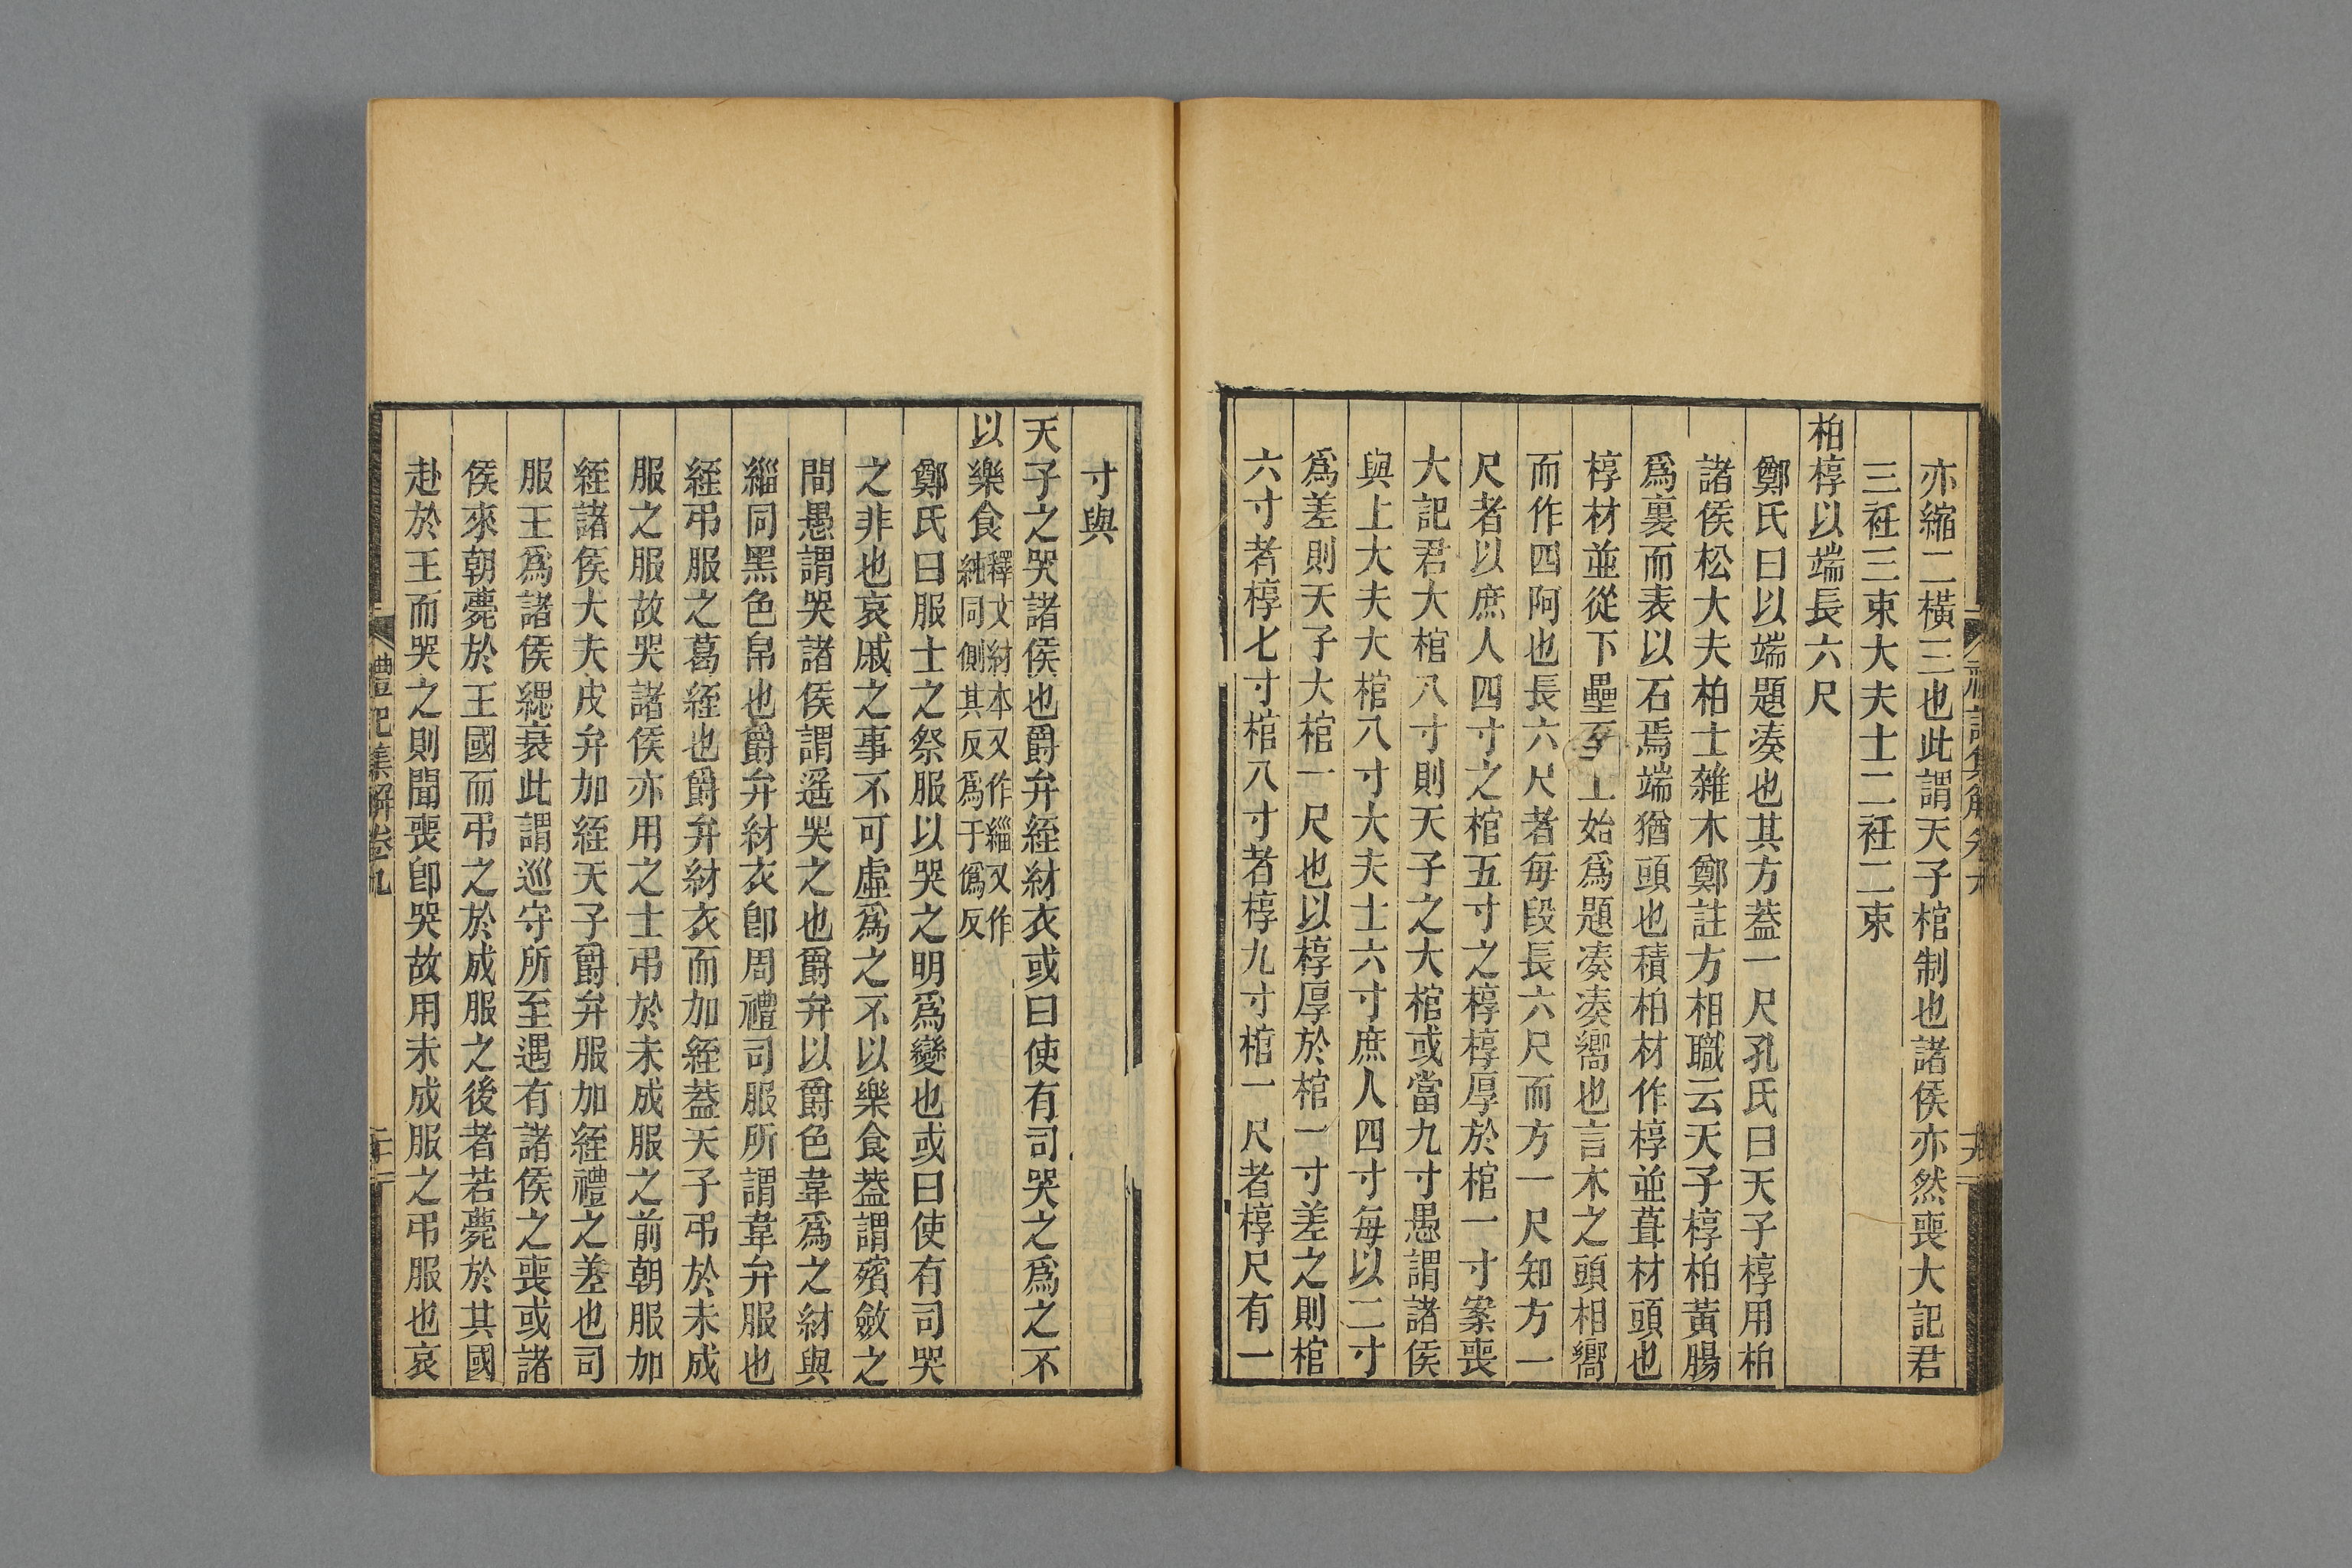 亦縮二橫三也此謂天子棺制也諸侯亦然喪大記君
三衽三束大夫士二衽二束
柏椁以端長六尺
鄭氏曰以端題湊也其方蓋一尺孔氏曰天子椁用柏
諸侯松大夫柏士雜木鄭註方相職云天子椁柏黃腸
爲裏而表以石焉端猶頭也積柏材作椁並葺材頭也
椁材並從下壘至上始爲題湊湊嚮也言木之頭相嚮
而作四阿也長六尺者每段長六尺而方一尺知方一
尺者以庶人四寸之棺五寸之椁椁厚於棺一寸案喪
大記君大棺八寸則天子之大棺或當九寸愚謂諸侯
與上大夫大棺八寸大夫士六寸庶人四寸每以二寸
爲差則天子大棺一尺也以椁厚於棺一寸差之則棺
六寸者椁七寸棺八寸者椁九寸棺一尺者椁尺有一
寸與
天子之哭諸侯也爵弁絰紂衣或曰使有司哭之爲之不
以樂食釋文紂本又作緇又作純同側其反爲于僞反
鄭氏曰服士之祭服以哭之明爲變也或曰使有司哭
之非也哀戚之事不可虛爲之不以樂食葢謂殯斂之
間愚謂哭諸侯謂遥哭之也爵弁以爵色韋爲之紂與
緇同黑色帛也爵弁紂衣卽周禮司服所謂韋弁服也
絰弔服之葛絰也爵弁紂衣而加絰葢天子弔於未成
服之服故哭諸侯亦用之士弔於未成服之前朝服加
絰諸侯大夫皮弁加絰天子爵弁服加絰禮之差也司
服王爲諸侯緦衰此謂巡守所至遇有諸侯之喪或諸
侯來朝薨於王國而弔之於成服之後者若薨於其國
赴於王而哭之則聞喪卽哭故用未成服之弔服也哀
禮記集解卷九